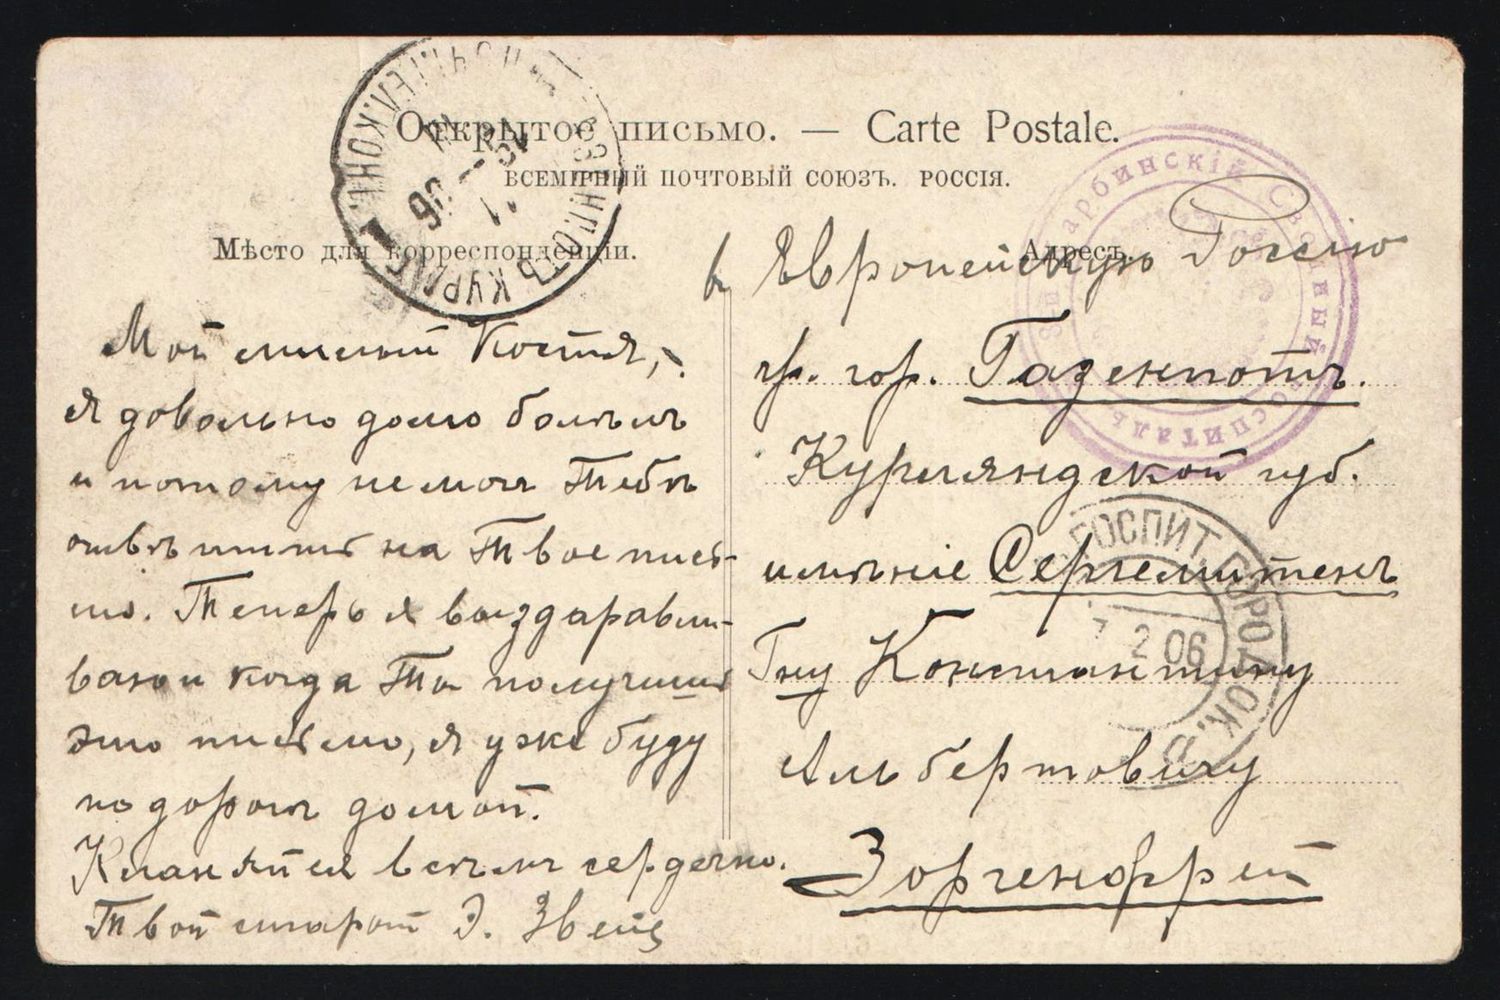 Открытое письмо. — Carte Postale.
ВСЕМІРНЫЙ ПОЧТОВЫЙ СОЮЗЪ. РОССІЯ.
Мѣсто для корреспонденціи.
Адресъ.
Мой милый Костя,
я довольно долго болѣлъ
и потому не могъ Тебѣ
отвѣтить на Твое пись-
мо. Теперь я выздаравли-
ваю и когда Ты получишь
это письмо, я уже буду
по дорогѣ домой.
Кланяйся всѣмъ сердечно.
Твой старой Э. Звейц
в Европейскую Россію
гр. гор. Газенпотъ.
Курляндской губ.
имѣніе Сергемитенъ
Гну Константину
Альбертовичу
Зоргенфрей
ГАЗЕНПОТЪ КУРЛ.
ПОЧ. ТЕЛ. КОН.
1
06
Харбинскій Сводный Госпиталь
ГОСПИТ. ГОРОДОК.
2 06